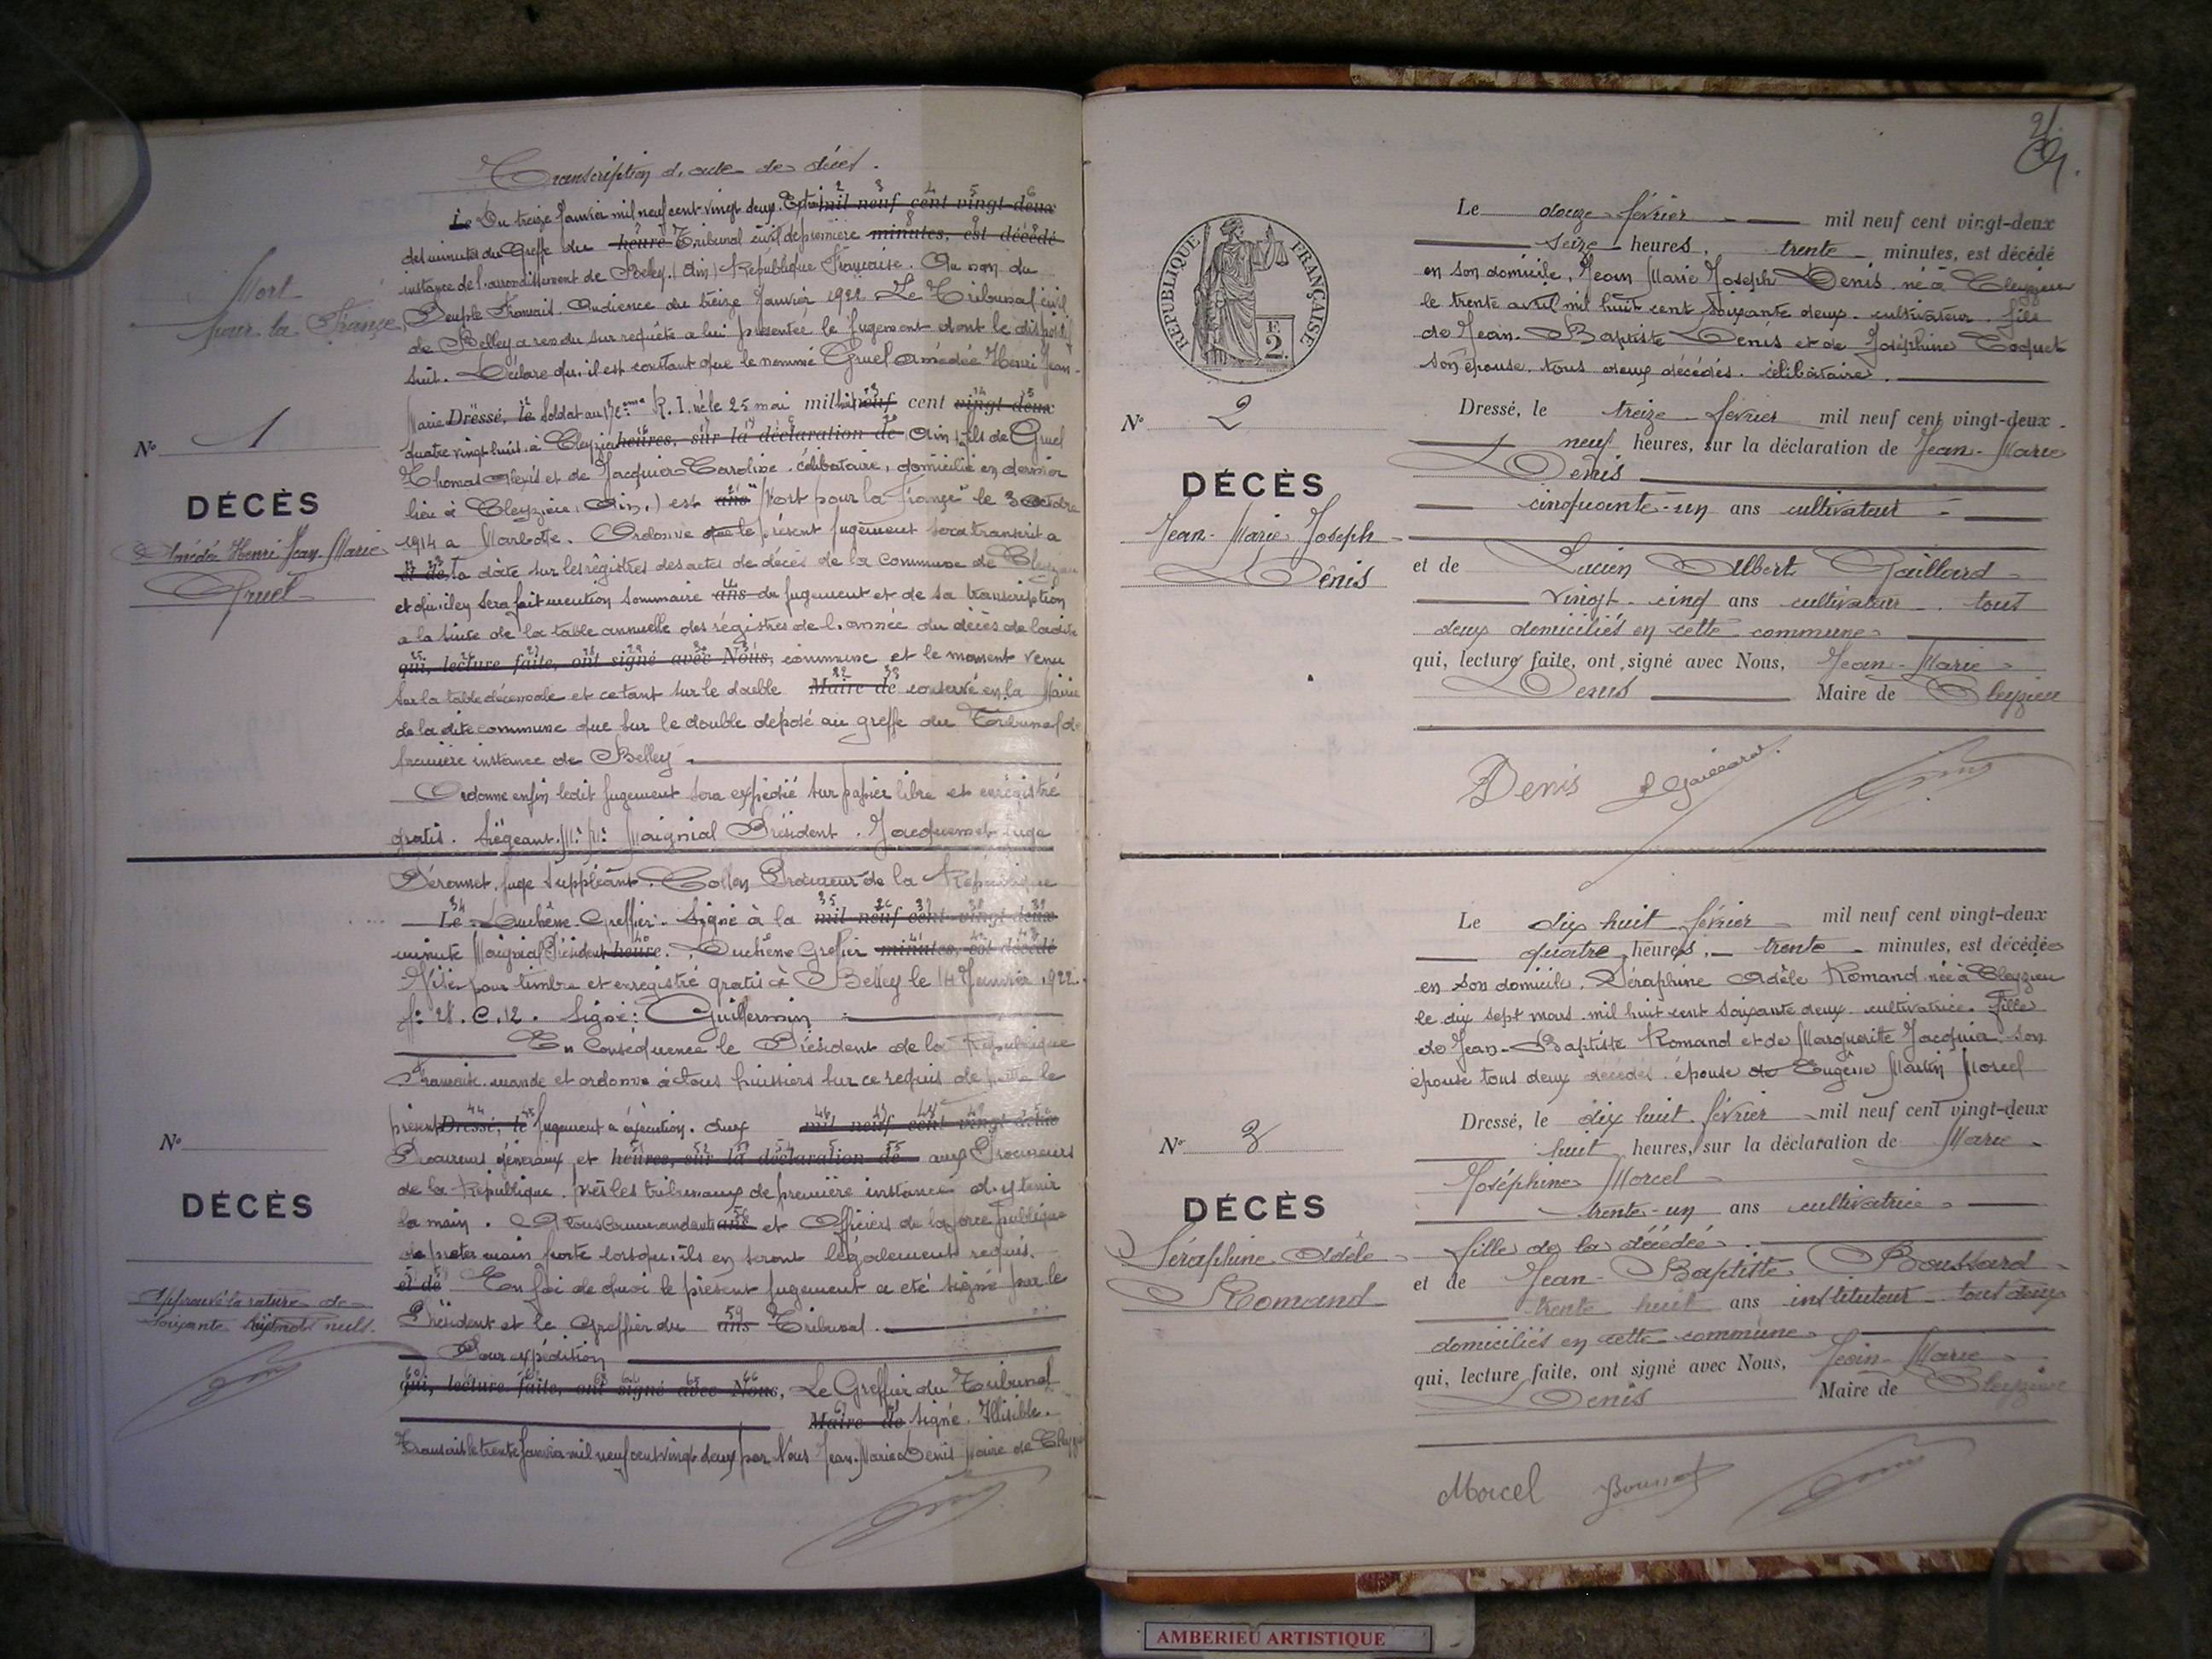 Transcription d. acte de décès.
Le Du treize Janvier mil neuf cent vingt deux. Extrait mil neuf cent vingt-deux
des minutes du Greffe du heure Tribunal civil de première minutes, est décédé
instance de l'arrondissement de Belley. (Ain) République Française. Au nom du
Peuple Français. Audience du treize Janvier 1922. Le Tribunal civil
de Belley a rendu sur requête a lui présentée le jugement dont le dispositif
suit. Déclare qu'il est constant que le nommé Gruel Amédée Henri Jean-
Marie Dressé, le Soldat au R. I. né le 25 mai mil huit neuf cent vingt-deux
quatre vingt huit à Cleyzieu heures, sur la déclaration de (Ain) fils de Gruel
Thomas Alexis et de Jacquier Caroline. célibataire, domicilié en dernier
lieu à Cleyzieu (Ain.) est ans "Mort pour la France" le 3 octobre
1914 a Marbotte. Ordonne que le présent jugement sera transcrit a
et de sa date sur les régistres des actes de décès de la Commune de Cleyzieu
et qu'il en sera fait mention sommaire ans du jugement et de sa transcription
a la suite de la table annuelle des régistres de l'année du décès de ladite
qui, lecture faite, ont signé avec Nous, commune et le moment venu
sur la table décennale et ce tant sur le double Maire de conservé en la Mairie
de la dite commune que sur le double déposé au greffe du Tribunal de
première instance de Belley
Ordonne enfin ledit jugement sera expédié sur papier libre et enrégistré
gratis. Siègeant. M. M. Maignial Président. Jacquemet Juge
Déronnet. juge suppléant. Collon Procureur de la République
Le Duchêne. Greffier. Signé à la mil neuf cent vingt deux
minute Maignial Président heure. Duchêne Greffier minutes, est décédé
Visé pour timbre et enregistré gratis à Belley le 14 Janvier 1922.
fº 28. C. 12. Signé: Guillermin
En conséquence le Président de la République
Française mande et ordonne à tous huissiers sur ce requis de mettre le
présent Dressé, le jugement a exécution. aux mil neuf cent vingt-deux
Procureurs généraux et heures, sur la déclaration de aux Procureurs
de la République. près les tribunaux de première instance d'y tenir
la main. A tous Commandants ans et Officiers de la force publique
de prêter main forte lorsqu'ils en seront légalement requis.
et de En foi de quoi le présent jugement a été signé par le
Président et le Greffier du ans Tribunal.
Pour expédition
qui, lecture faite, ont signé avec Nous, Le Greffier du Tribunal
Maire de Signé. Illisible.
Transcrit le trente Janvier mil neuf cent vingt deux par Nous Jean-Marie Denis Maire de Cleyzieu
Mort
pour la France
No 1
DÉCÈS
Amédée Henri Jean-Marie
Gruel
No
DÉCÈS
Approuvé la rature de
soixante huit mots nuls.
2
RÉPUBLIQUE FRANÇAISE
2.
No 2
DÉCÈS
Jean-Marie Joseph
Denis
Le douze février mil neuf cent vingt-deux
seize heures, trente minutes, est décédé
en son domicile, Jean Marie Joseph Denis né à Cleyzieu
le trente avril mil huit cent soixante deux. cultivateur. fils
de Jean-Baptiste Denis et de Joséphine Coquet
son épouse. tous deux décédés. célibataire.
Dressé, le treize février mil neuf cent vingt-deux
neuf heures, sur la déclaration de Jean-Marie
Denis
cinquante-un ans cultivateur
et de Lucien Albert Gaillard
vingt-cinq ans cultivateur. tous
deux domiciliés en cette commune
qui, lecture faite, ont signé avec Nous, Jean-Marie
Denis Maire de Cleyzieu
Denis L Gaillard
No 3
DÉCÈS
Séraphine Adèle
Romand
Le dix huit février mil neuf cent vingt-deux
quatre heures, trente minutes, est décédée
en son domicile, Séraphine Adèle Romand née à Cleyzieu
le dix sept mars mil huit cent soixante deux. cultivatrice. fille
de Jean-Baptiste Romand et de Marguerite Jacquier son
épouse tous deux décédés. épouse de Eugène Martin Morcel
Dressé, le dix huit février mil neuf cent vingt-deux
huit heures, sur la déclaration de Marie
Joséphine Morcel
trente-un ans cultivatrice
fille de la décédée
et de Jean-Baptiste Boussard
trente huit ans instituteur tous deux
domiciliés en cette commune
qui, lecture faite, ont signé avec Nous, Jean-Marie
Denis Maire de Cleyzieu
Morcel
AMBERIEU ARTISTIQUE